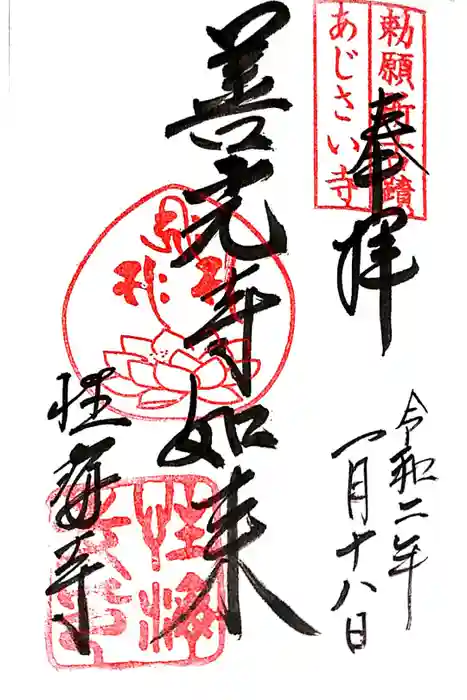 勅願
あじさい寺
奉拝
令和二年
一月十八日
善光寺如来
性海寺
性海